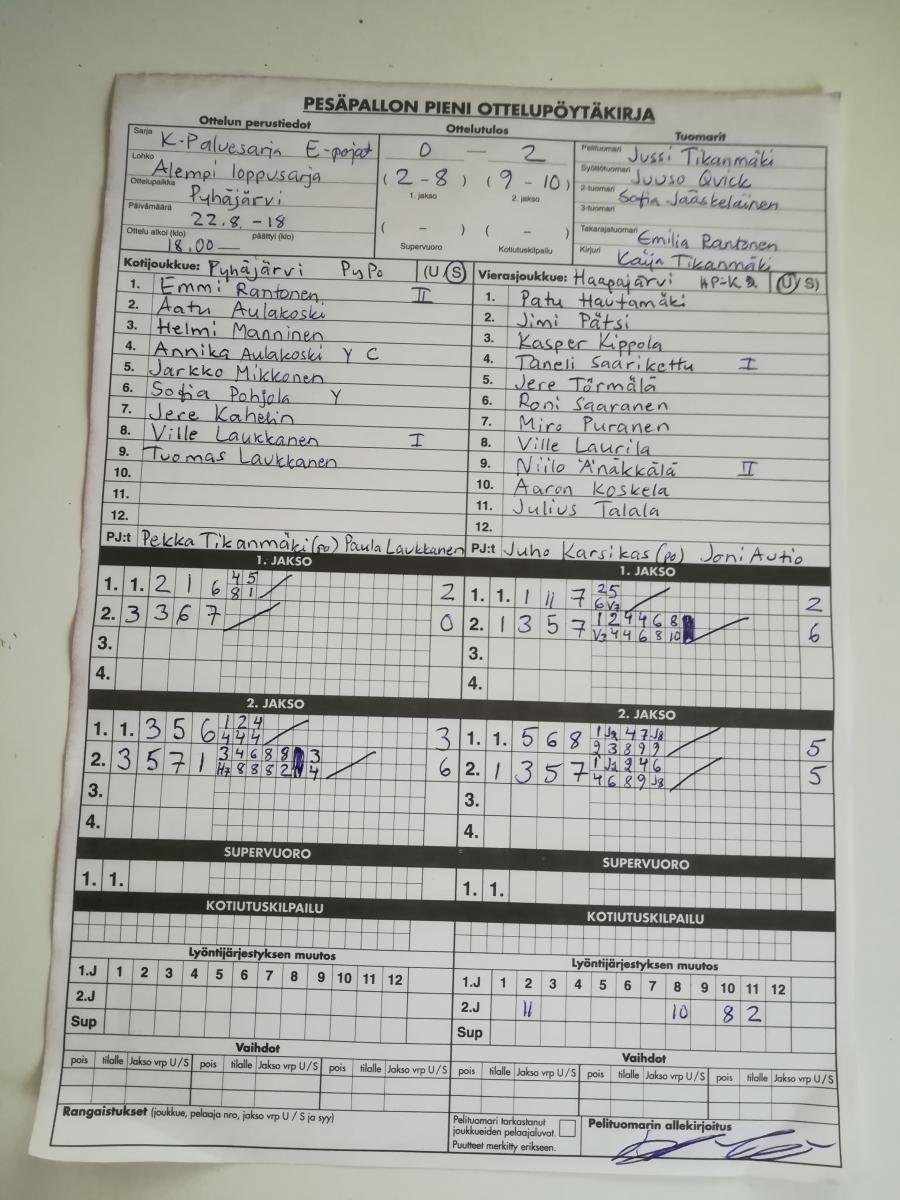 PESÄPALLON PIENI OTTELUPÖYTÄKIRJA
Ottelun perustiedot
Ottelutulos
Tuomarit
Sarja K-Palvesarja E-pojat
Lohko Alempi loppusarja
Ottelupaikka Pyhäjärvi
Päivämäärä 22.8.-18
Ottelu alkoi (klo) 18.00 päättyi (klo)
0 — 2
(2-8) (9-10)
1. jakso 2. jakso
( - ) ( - )
Supervuoro Kotiutuskilpailu
Pelituomari Jussi Tikanmäki
Syöttötuomari Juuso Qvick
2-tuomari Sofia Jääskeläinen
3-tuomari
Takarajatuomari Emilia Rantonen
Kirjuri Kaija Tikanmäki
Kotijoukkue: Pyhäjärvi PyPo (U/S)
1. Emmi Rantonen II
2. Aatu Aulakoski
3. Helmi Manninen
4. Annika Aulakoski Y C
5. Jarkko Mikkonen
6. Sofia Pohjola Y
7. Jere Kahelin
8. Ville Laukkanen I
9. Tuomas Laukkanen
10.
11.
12.
PJ:t Pekka Tikanmäki (po) Paula Laukkanen
Vierasjoukkue: Haapajärvi HP-K (U/S)
1. Patu Hautamäki
2. Jimi Pätsi
3. Kasper Kippola
4. Taneli Saarikettu I
5. Jere Törmälä
6. Roni Saaranen
7. Miro Puranen
8. Ville Laurila
9. Niilo Änäkkälä II
10. Aaron Koskela
11. Julius Talala
12.
PJ:t Juho Karsikas (po) Joni Autio
1. JAKSO
1. 1. 2 1 6 4 5 2
8 1
2. 3 3 6 7 0
3.
4.
1. JAKSO
1. 1. 1 11 7 2 5 2
6 V7
2. 1 3 5 7 1 2 4 4 6 8 6
V7 4 4 6 8 10
3.
4.
2. JAKSO
1. 1. 3 5 6 1 2 4 3
4 4 4
2. 3 5 7 1 3 4 6 8 8 3 6
H7 8 8 8 2 4
3.
4.
2. JAKSO
1. 1. 5 6 8 1 J2 4 7 J8 5
2 3 8 9 9
2. 1 3 5 7 1 J2 2 4 6 5
4 6 8 9 J8
3.
4.
SUPERVUORO
1. 1.
SUPERVUORO
1. 1.
KOTIUTUSKILPAILU
KOTIUTUSKILPAILU
Lyöntijärjestyksen muutos
1.J 1 2 3 4 5 6 7 8 9 10 11 12
2.J
Sup
Lyöntijärjestyksen muutos
1.J 1 2 3 4 5 6 7 8 9 10 11 12
2.J 11 10 8 2
Sup
Vaihdot
pois tilalle Jakso vrp U/S pois tilalle Jakso vrp U/S pois tilalle Jakso vrp U/S
Vaihdot
pois tilalle Jakso vrp U/S pois tilalle Jakso vrp U/S pois tilalle Jakso vrp U/S
Rangaistukset (joukkue, pelaaja nro, jakso vrp U / S ja syy)
Pelituomari tarkastanut
joukkueiden pelaajaluvat.
Puutteet merkitty erikseen.
Pelituomarin allekirjoitus